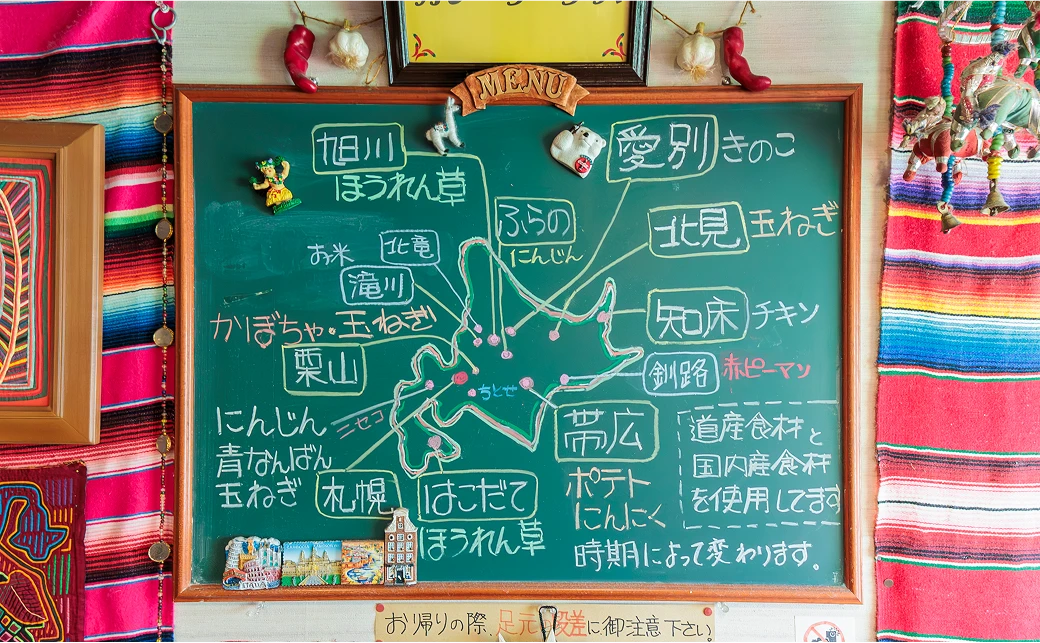 MENU
旭川
ほうれん草
愛別 きのこ
ふらの
にんじん
北見 玉ねぎ
お米 北竜
滝川
かぼちゃ・玉ねぎ
知床 チキン
栗山
釧路 赤ピーマン
ちとせ
ニセコ
にんじん
青なんばん
玉ねぎ
札幌
はこだて
ほうれん草
帯広
ポテト
にんにく
道産食材と
国内産食材
を使用してます
時期によって変わります。
ITALIA
お帰りの際、足元の段差に御注意下さい。